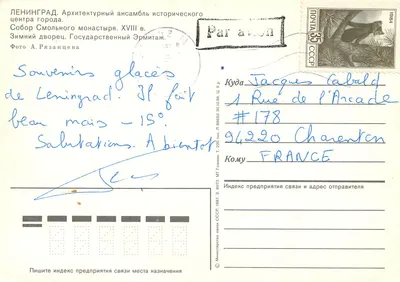 ЛЕНИНГРАД. Архитектурный ансамбль исторического
центра города.
Собор Смольного монастыря. XVIII в.
Зимний дворец. Государственный Эрмитаж.
Фото А. Рязанцева
Par avion
ПОЧТА
СССР
35
1984
Souvenirs glacés
de Leningrad. Il fait
beau mais – 15°.
Salutations. A bientot
Куда Jacques Cabald
1 Rue de l'Arcade
#178
94220 Charenton
Кому FRANCE
Индекс предприятия связи и адрес отправителя
Пишите индекс предприятия связи места назначения